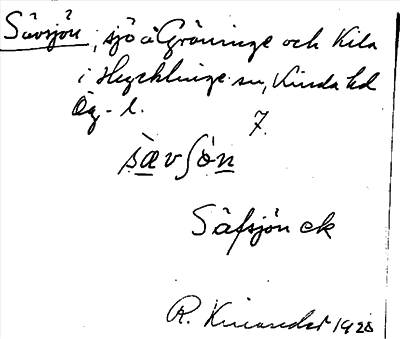 Sävsjön, sjö å Gröninge och Kila
i Hycklinge sn, Kinda hd
Ög. l.
7.
sævʃön
Säfsjön ek
R. Kinander 1920